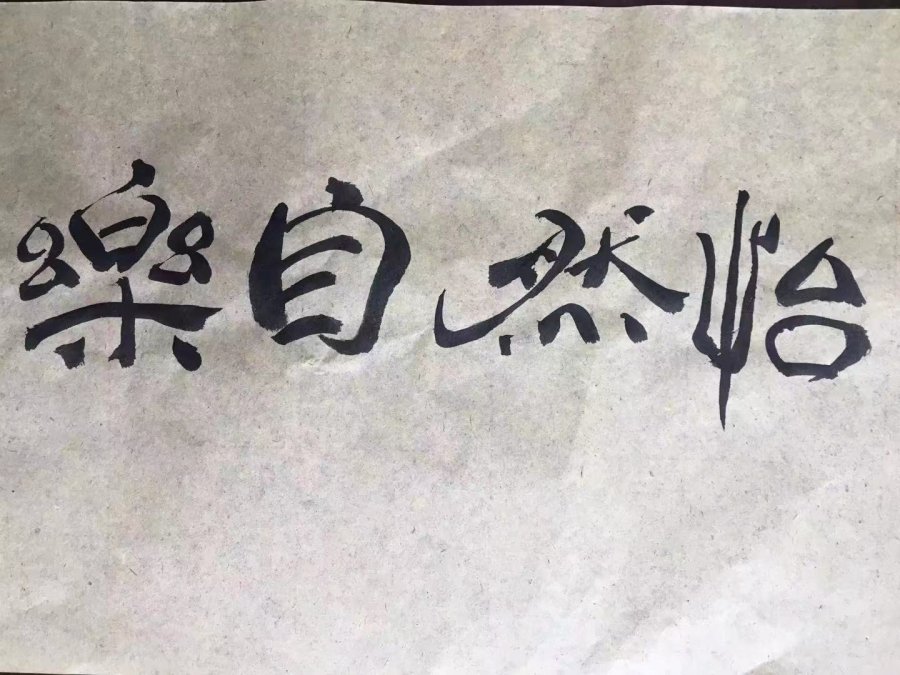 怡然自樂